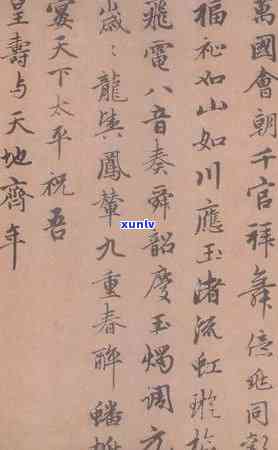 萬國會朝千官拜舞億兆同歡
福祉如山如川應玉渚流虹璇樞
飛電八音奏舜韶慶玉燭調元
歲〻龍輿鳳輦九重春醉蟠桃
宴天下太平祝吾
皇壽与天地齊年
xunlv